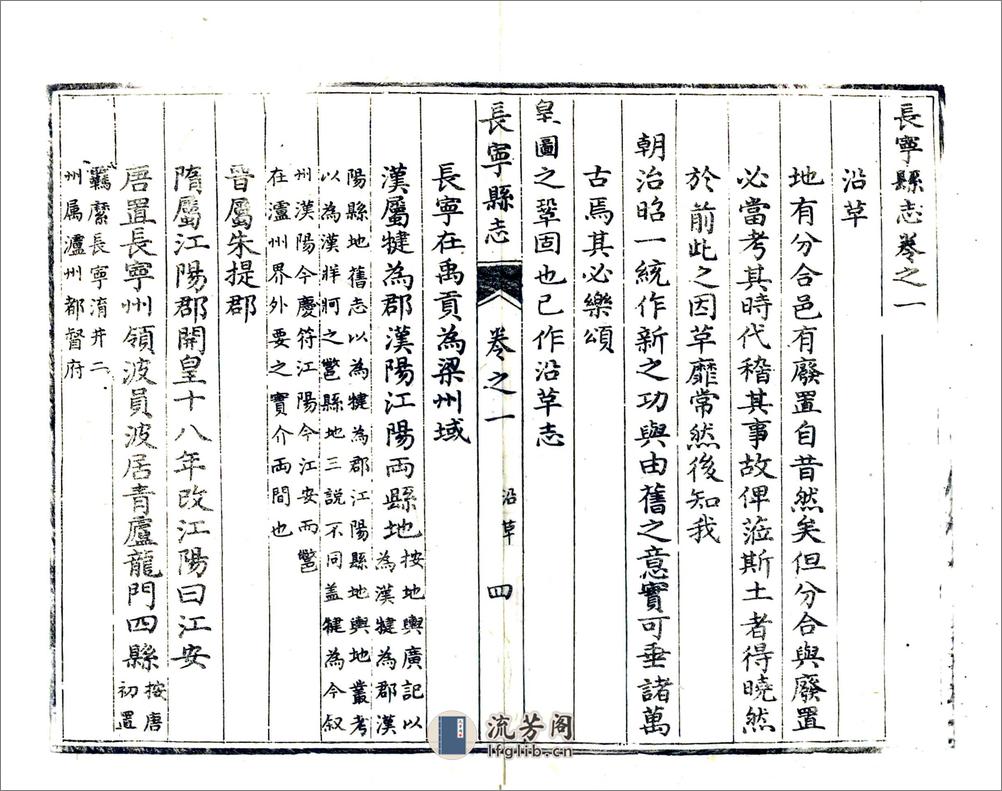 長寧縣志卷之一
沿革
地有分合邑有廢置自昔然矣但分合與廢置
必當考其時代稽其事故俾蒞斯土者得曉然
於前此之因革靡常然後知我
朝治昭一統作新之功與由舊之意實可垂諸萬
古焉其必樂頌
皇圖之鞏固也已作沿革志
長寧縣志 卷之一 沿革 四
長寧在禹貢為梁州域
漢屬犍為郡漢陽江陽兩縣地按地輿廣記以
為漢犍為郡漢
陽縣地舊志以為犍為郡江陽縣地輿地叢考
以為漢牂牁之鄨縣地三說不同盖犍為今叙
州漢陽今慶符江陽今江安而鄨
在瀘州界外要之實介兩間也
晉屬朱提郡
隋屬江陽郡開皇十八年改江陽曰江安
唐置長寧州領波員波居青盧龍門四縣按唐
初置
羈縻長寧淯井二
州属瀘州都督府
流芳阁
lfglib.cn